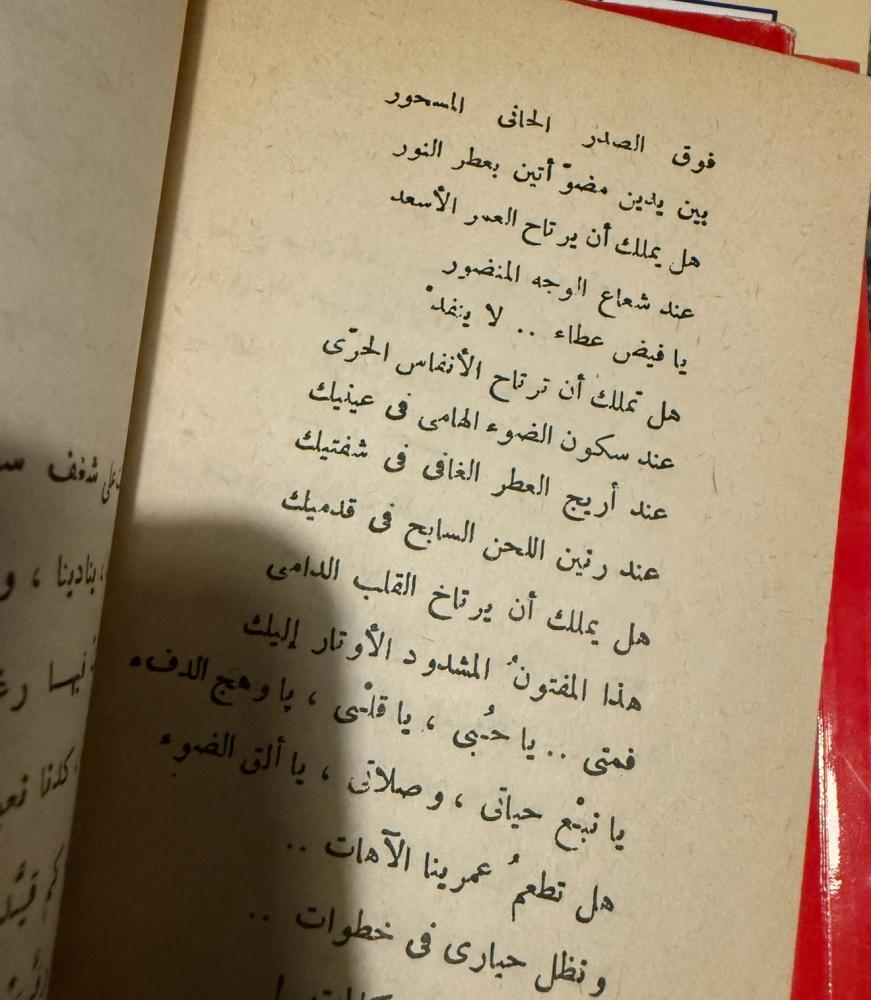 فوق الصدر الحانى المسحور
بين يدين مضوّأتين بعطر النور
هل يملك أن يرتاح العمر الأسعد
عند شعاع الوجه المنضور
يا فيض عطاء .. لا ينفدْ
هل تملك أن ترتاح الأنفاس الحرّى
عند سكون الضوء الهامى فى عينيك
عند أريج العطر الغافى فى شفتيك
عند رنين اللحن السابح فى قدميك
هل يملك أن يرتاخ القلب الدامى
هذا المفتونُ المشدود الأوتار إليك
فمتى .. يا حُبى ، يا قلْبى ، يا وهج الدفء
يا نبْع حياتى ، وصلاتى ، يا ألق الضوء
هل تطعمُ عمرينا الآهات ..
ونظل حيارى فى خطوات ..
على شغف
ينادينا ، و
كدنا
كم